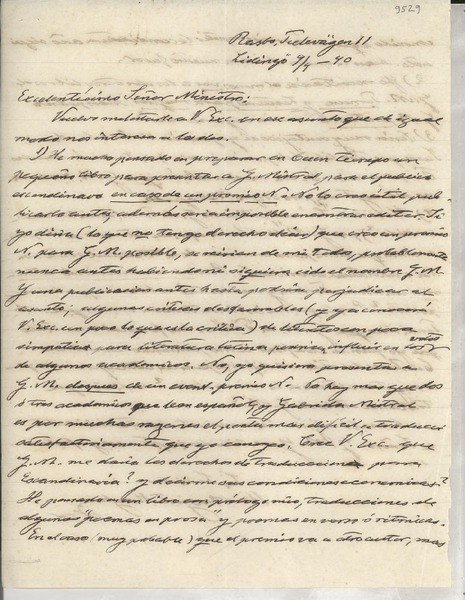 9529
Rasbo, Federvägen 11
Lidingö 9/4 – 40
Excelentísimo Señor Ministro:
Vuelvo molestarle a V. Exc. en ese asunto que de igual
modo nos interesa a los dos.
1) He mucho pensado en preparar en buen tiempo un
pequeño libro para presentar a G. Mistral para el publico
escandinavo en caso de un premio N. No lo creo útil publi-
carlo antes, además sería imposible encontrar editor. Si
yo diría (lo que no tengo derecho de) que creo un premio
N. para G. M. posible, se reirían de mi todos, probablemente
nunca antes habiendo ni siquiera oído el nombre G. M.
Y una publicacion antes hasta podría perjudicar al
asunto; algunas críticas desfavorables (y ya conocerá
V. Exc. un poco lo que es la crítica) de talentos con poca
simpatía para literatura latina podría influir en los votos
de algunos académicos. No, yo quisiera presentar a
G. M. despues de un event. premio N. No hay mas que dos
ó tres academicos que leen español y Gabriela Mistral
es por muchas razones el poeta mas dificil a traducir
satisfactoriamente que yo conozco. Cree V. Exc. que
G. M. me daría los derechos de traducciones para
Escandinavia? y decirme sus condiciones economicas?
He pensado en un libro con prólogo mio, traducciones de
algunos "poemas en prosa" y poemas en verso ó rítmicos.
En el caso (muy probable) que el premio va a otro autor, mas